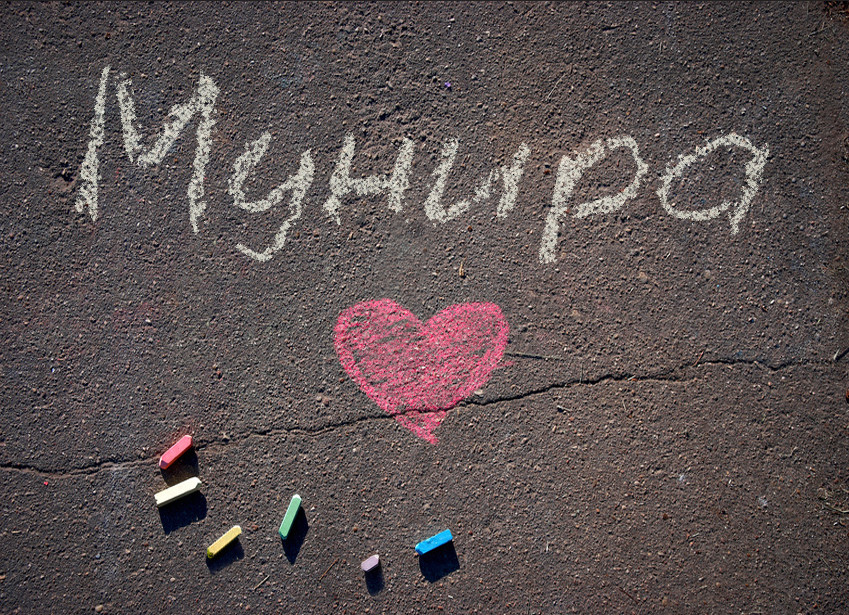 Мунира